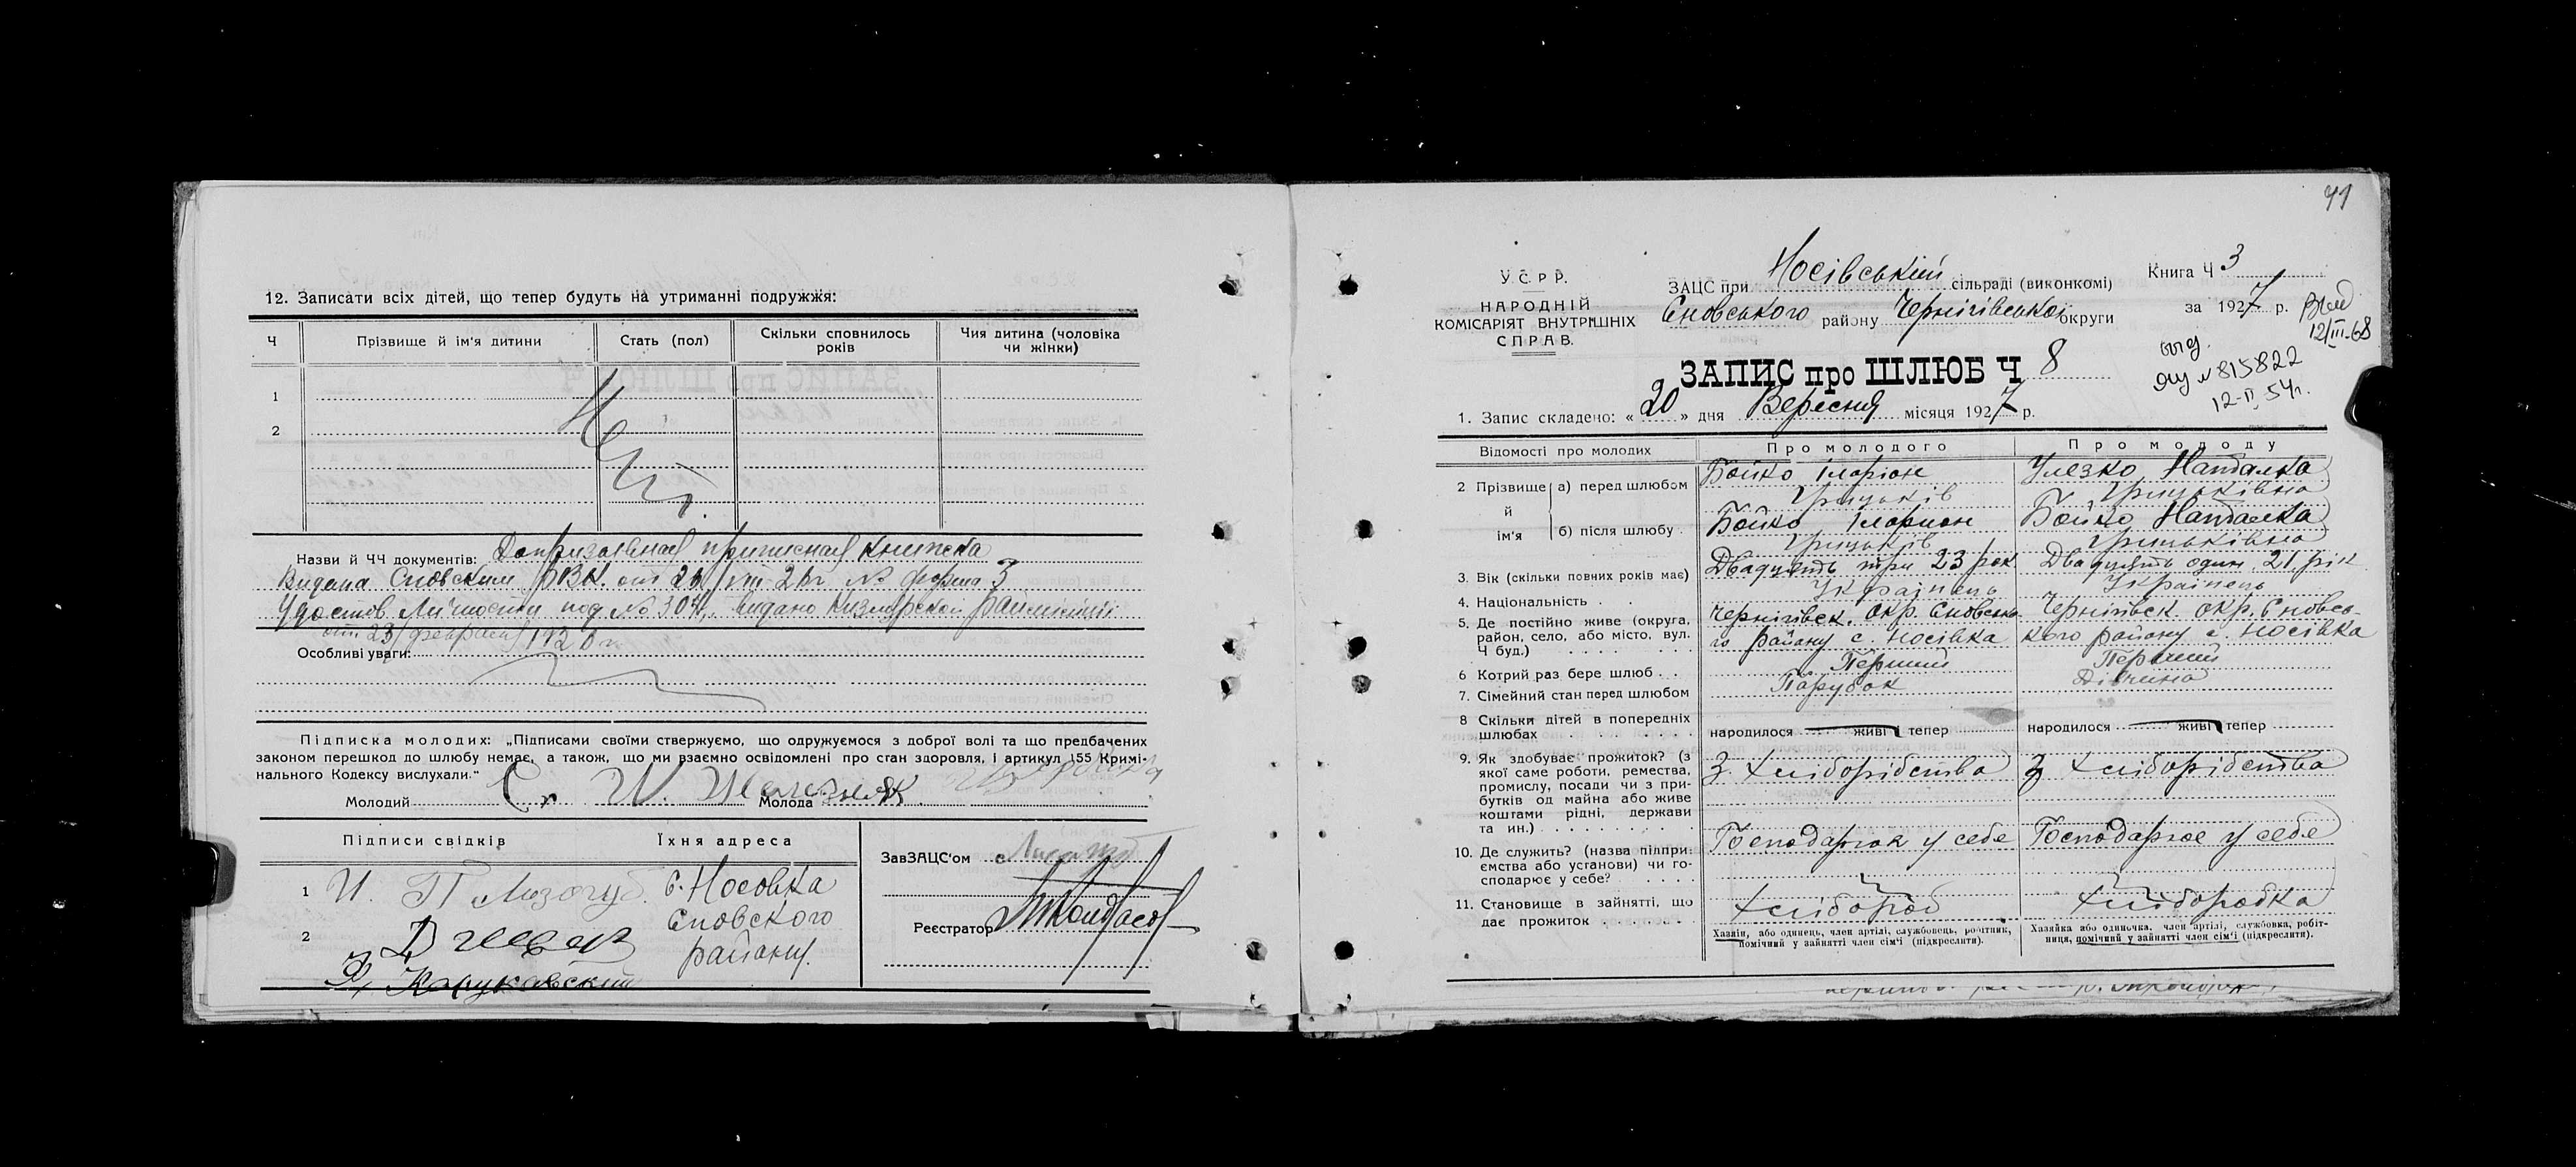 12. Записати всіх дітей, що тепер будуть на утриманні подружжя:
Ч
Прізвище й ім'я дитини
Стать (пол)
Скільки сповнилось років
Чия дитина (чоловіка чи жінки)
1
2
Нет.
Назви й ЧЧ документів: Допризовная приписная книжка
Видана Сновским РВК. от
№ форма 3
Удостов. Личности под № 304, видано
от 23 февраля
Особливі уваги:
Підписка молодих: „Підписами своїми ствержуємо, що одружуємося з доброї волі та що предбачених
законом перешкод до шлюбу немає, а також, що ми взаємно освідомлені про стан здоровля, і артикул 155 Кримі-
нального Кодексу вислухали."
Молодий
Молода
Підписи свідків
Їхня адреса
1 И. П. Лизогуб
с. Носовка
Сновского
району.
2
ЗавЗАЦС'ом
Реєстратор
У.С.Р.Р.
НАРОДНІЙ
КОМІСАРІЯТ ВНУТРІШНІХ
СПРАВ.
ЗАЦС при Носівській сільраді (виконкомі)
Сновського району Чернігівської округи
Книга Ч 3
за 1927 р.
12/III-68
выд.
№ 815822
12-II 54г.
ЗАПИС про ШЛЮБ Ч 8
1. Запис складено: «20» дня Вересня місяця 1927 р.
Відомості про молодих
Про молодого
Про молоду
2 Прізвище й ім'я
а) перед шлюбом
Бойко Іларіон
Грицьків
Улезко Наталка
Грицьківна
б) після шлюбу
Бойко Іларион
Грицьків
Бойко Наталка
Грицьківна
3. Вік (скільки повних років має)
Двадцять три 23 рок
Двадцять один 21 рік
4. Національність
Українець
Українець
5. Де постійно живе (округа,
район, село, або місто, вул.
Ч буд.)
Чернігівск. окр. Сновсько-
го району с. Носівка
Чернігівск. окр. Сновсь-
кого району с. Носівка
6 Котрий раз бере шлюб
Перший
Перший
7. Сімейний стан перед шлюбом
Парубок
Дівчина
8 Скільки дітей в попередніх
шлюбах
народилося живі тепер
народилося живі тепер
9. Як здобуває прожиток? (з
якої саме роботи, ремества,
промислу, посади чи з при-
бутків од майна або живе
коштами рідні, держави
та ин.)
З хліборобства
З хліборобства
10. Де служить? (назва підпри-
ємства або установи) чи го-
сподарює у себе?
у себе
Господарює у себе
11. Становище в зайнятті, що
дає прожиток
Хлібороб
Хліборобка
Хазяїн, або одинець, член артілі, службовець, робітник,
помічний у зайнятті член сім'ї (підкреслити).
Хазяйка або одиначка, член артілі, службовка, робіт-
ниця, помічний у зайнятті член сім'ї (підкреслити).